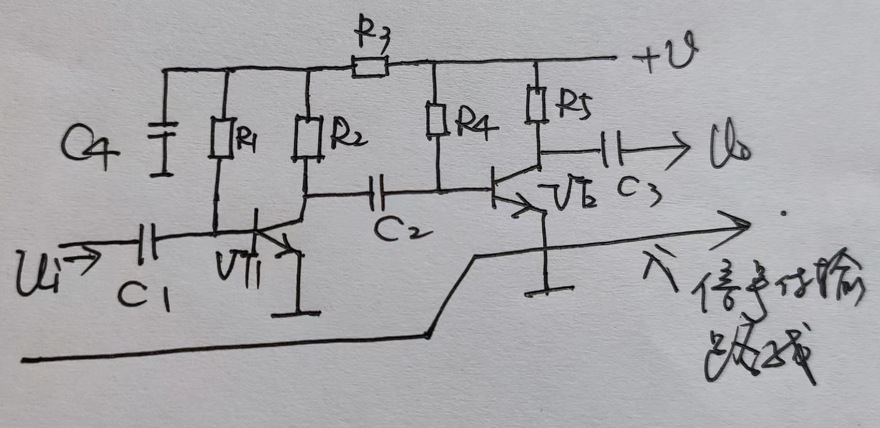 R3
+U
C4
R1
R2
R4
R5
Uo
C2
VT2
C3
Ui
C1
VT1
信号传输
路线